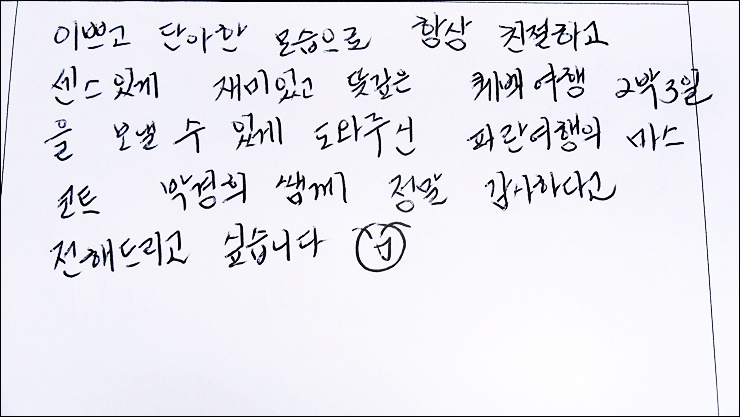 이쁘고 단아한 모습으로 항상 친절하고
센스있게 재미있고 뜻깊은 퀘백여행 2박3일
을 보낼 수 있게 도와주신 파란여행의 마스
코트 박경희 쌤께 정말 감사하다고
전해드리고 싶습니다